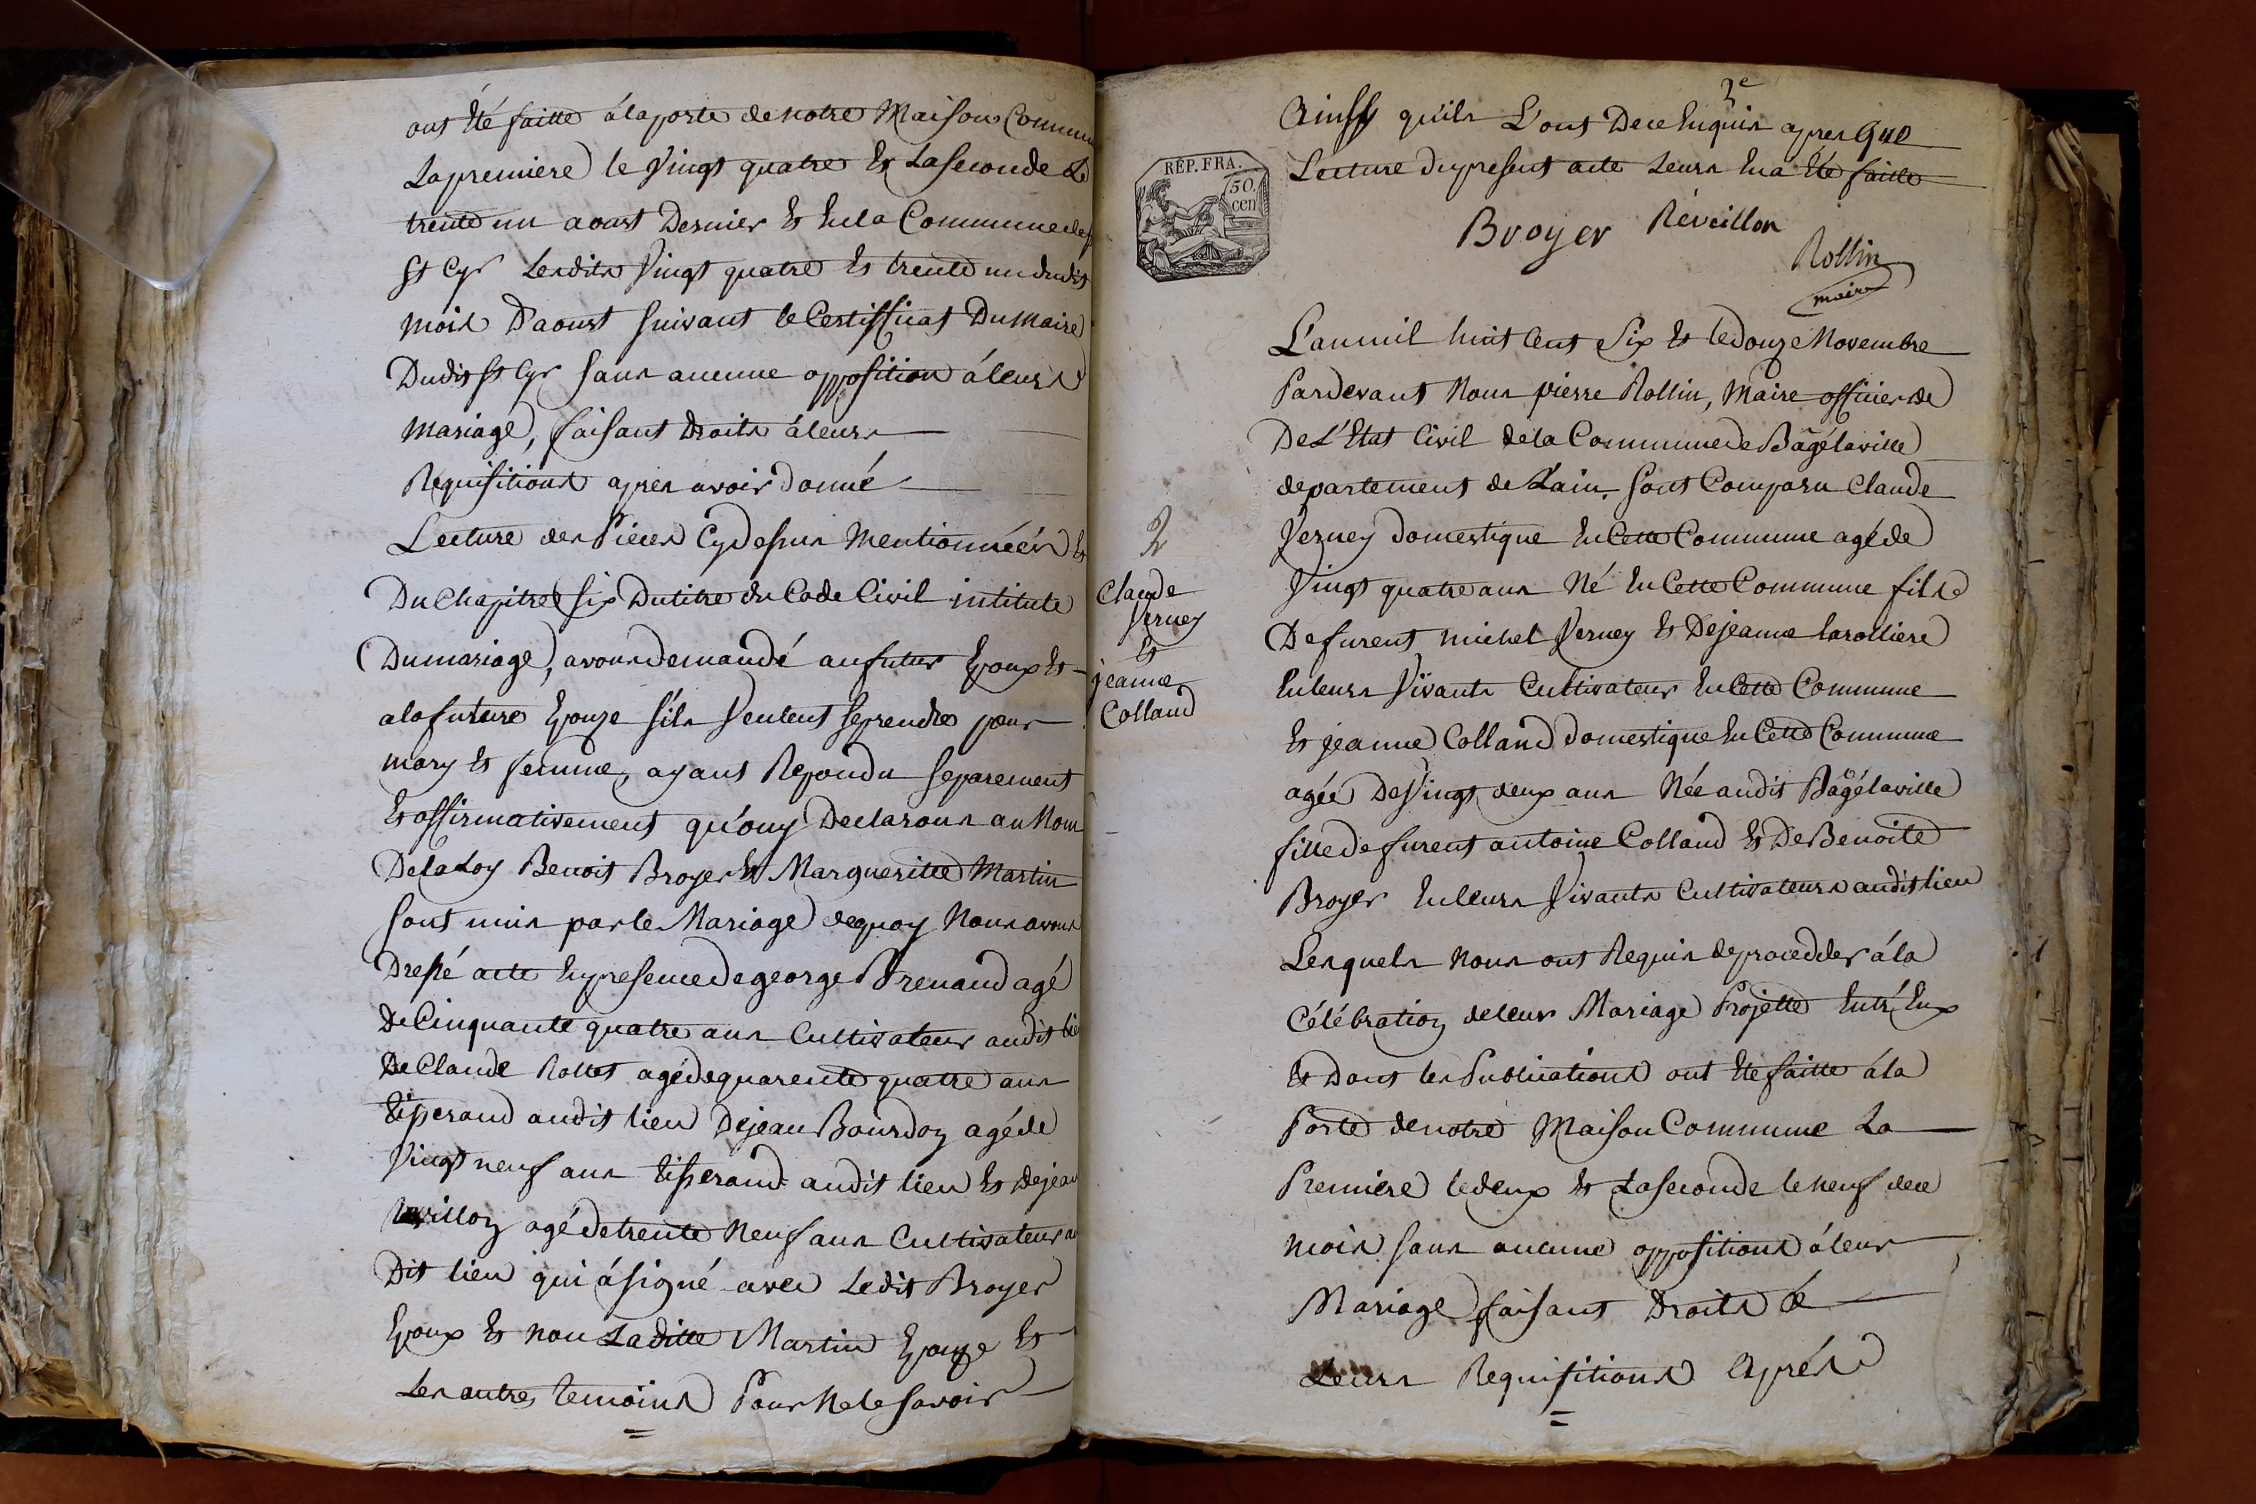 ont Eté faitte á la porte de notre Maison Commune
La premiere le Vingt quatre Et La seconde Le
trente un aoust Dernier Et En la Commune de
St Cyr Lesdits Vingt quatre Et trente un dudit
mois D'aoust suivant le Certifficat Du Maire
Dudit St Cyr sans aucune opposition á leurs
mariage, faisant Droits á leurs
Requisitions apres avoir donné
Lecture des Piéces Cy Dessus Mentionnéés Et
Du Chapitre Six Du titre du Code Civil intitulé
Du mariage, avons demandé au futur Epoux Et
a la future Epouze s'ils Veulent se prendre pour
mary Et femme, ayant Repondu separement
Et affirmativement qu'ouy Declarons au Nom
De la Loy Benoit Broyer Et Margueritte Martin
sont unis par le Mariage de quoy Nous avons
Dressé acte En presence de george Prenaud agé
De Cinquante quatre ans Cultivateur audit lieu
De Claude Rollet agé de quarente quatre ans
tisserand audit lieu De jean Bourdon agé de
Vingt neuf ans tisserand audit lieu Et de jean
agé de trente Neuf ans Cultivateur au
Dit lieu qui á signé avec Ledit Broyer
Epoux Et non Laditte Martin Epouze Et
Les autres temoins Pour Ne le savoir
3e
Ainssy qu'ils L'ont De ce Enquis apres que
Lecture du present acte Leurs En a Eté faitte
RÉP. FRA.
50
cen
Broyer Réveillon
Rollin
maire
L'an mil huit Cent Six Et le douze Novembre
Pardevant Nous pierre Rollin, Maire officier de
De L'Etat Civil de la Commune de Bâgélaville
departement de L'ain, sont Comparu Claude
Verney domestique En Cette Commune agé de
Vingt quatre ans Né En Cette Commune fils
De furent michel Verney Et De jeanne Larolliere
En leurs Vivants Cultivateur En Cette Commune
Et jeanne Colland domestique En Cette Commune
agée De Vingt deux ans Née audit Bâgélaville
fille de furent antoine Colland Et De Benoite
Broyer En leurs Vivants Cultivateurs audit lieu
Lesquels Nous ont Requis de procedder á la
Célébration de leur Mariage Projetté Entr'Eux
Et Dont les Publications ont Eté faitte á la
Porte de notre Maison Commune La
Premiere le deux Et La seconde le neuf de ce
mois sans aucune oppositions á leur
Mariage faisant Droits á
Leurs Requisitions Aprés
Claude
Verney
Et
jeanne
Colland